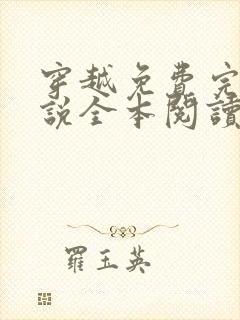 穿越免費完
說全本閱讀
羅玉英